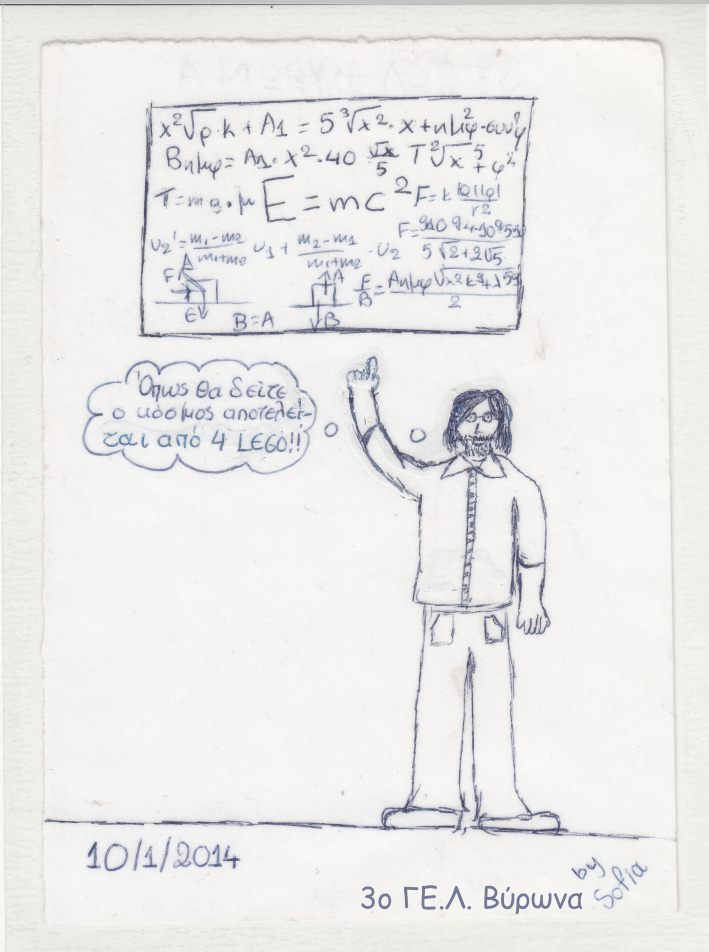 x²√ρ·k + A1 = 5 ³√x²· x + ημφ²·συνφ
Bημφ = A1· x²·40 √x/5 T ²√x⁵ + φ²
T=m·g·μ E = mc² F= k |Q||q|/r2
υ2'= m1-m2/m1+m2 υ1 + m2-m1/m1+m2 ·υ2
5√2+2√5
F A E B=A A B E/B =
2
Όπως θα δείτε
ο κόσμος αποτελεί-
ται από 4 LEGO!!
10/1/2014
3ο ΓΕ.Λ. Βύρωνα
by Sofia